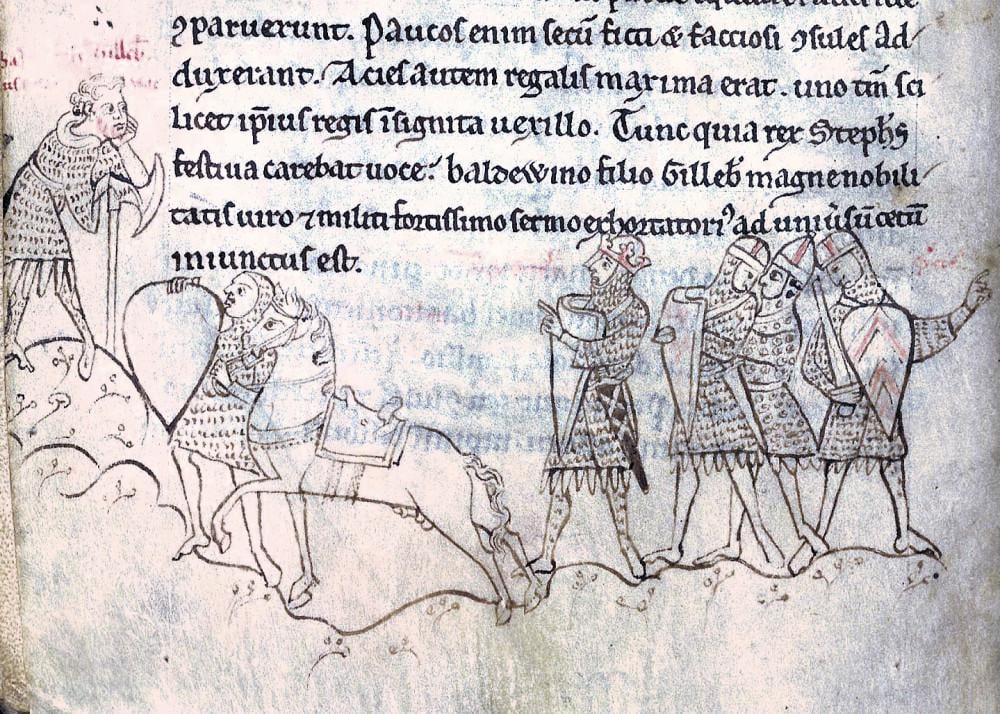 ꝯparuerunt. Paucos enim secū ficti & factiosi ꝯsules ad
duxerant. Acies autem regalis maxima erat. uno tm̄ sci
licet ip̄ius regis īsignita uexillo. Tunc quia rex Steph̄s
festiua carebat uoce: baldewino filio Gilleb̄ magne nobili
tatis uiro ⁊ militi fortissimo sermo exhortatoriꝰ ad uniūsū cetū
iniunctus est.